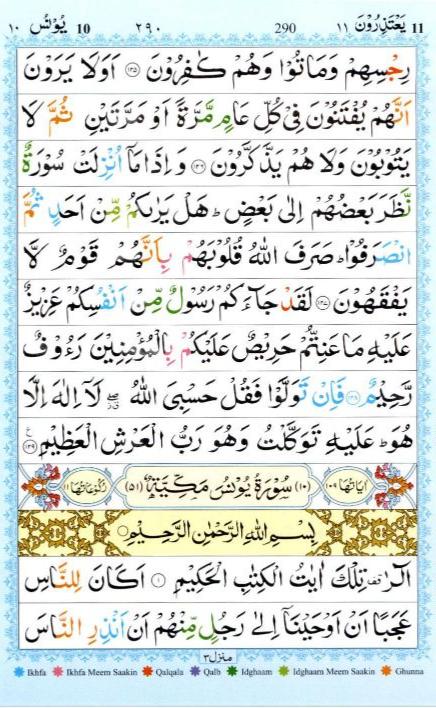 ١٠ يُوْنُس 10 ٢٩٠ 290 يَعْتَذِرُوْنَ ١١ 11
رِجْسِهِمْ وَمَاتُوْا وَهُمْ كٰفِرُوْنَ ۝١٢٥ اَوَلَا يَرَوْنَ
اَنَّهُمْ يُفْتَنُوْنَ فِيْ كُلِّ عَامٍ مَّرَّةً اَوْ مَرَّتَيْنِ ثُمَّ لَا
يَتُوْبُوْنَ وَلَا هُمْ يَذَّكَّرُوْنَ ۝١٢٦ وَاِذَا مَاۤ اُنْزِلَتْ سُوْرَةٌ
نَّظَرَ بَعْضُهُمْ اِلٰى بَعْضٍ ؕ هَلْ يَرٰىكُمْ مِّنْ اَحَدٍ ثُمَّ
انْصَرَفُوْا ؕ صَرَفَ اللّٰهُ قُلُوْبَهُمْ بِاَنَّهُمْ قَوْمٌ لَّا
يَفْقَهُوْنَ ۝١٢٧ لَقَدْ جَآءَكُمْ رَسُوْلٌ مِّنْ اَنْفُسِكُمْ عَزِيْزٌ
عَلَيْهِ مَا عَنِتُّمْ حَرِيْصٌ عَلَيْكُمْ بِالْمُؤْمِنِيْنَ رَءُوْفٌ
رَّحِيْمٌ ۝١٢٨ فَاِنْ تَوَلَّوْا فَقُلْ حَسْبِيَ اللّٰهُ ۖ لَاۤ اِلٰهَ اِلَّا
هُوَ ؕ عَلَيْهِ تَوَكَّلْتُ وَهُوَ رَبُّ الْعَرْشِ الْعَظِيْمِ ۝١٢٩
اٰيَاتُهَا ١٠٩ (١٠) سُوْرَةُ يُوْنُسَ مَكِّيَّةٌ (٥١) رُكُوْعَاتُهَا ١١
بِسْمِ اللّٰهِ الرَّحْمٰنِ الرَّحِيْمِ
الٓرٰ ۫ تِلْكَ اٰيٰتُ الْكِتٰبِ الْحَكِيْمِ ۝١ اَكَانَ لِلنَّاسِ
عَجَبًا اَنْ اَوْحَيْنَاۤ اِلٰى رَجُلٍ مِّنْهُمْ اَنْ اَنْذِرِ النَّاسَ
منزل ٣
Ikhfa Ikhfa Meem Saakin Qalqala Qalb Idghaam Idghaam Meem Saakin Ghunna